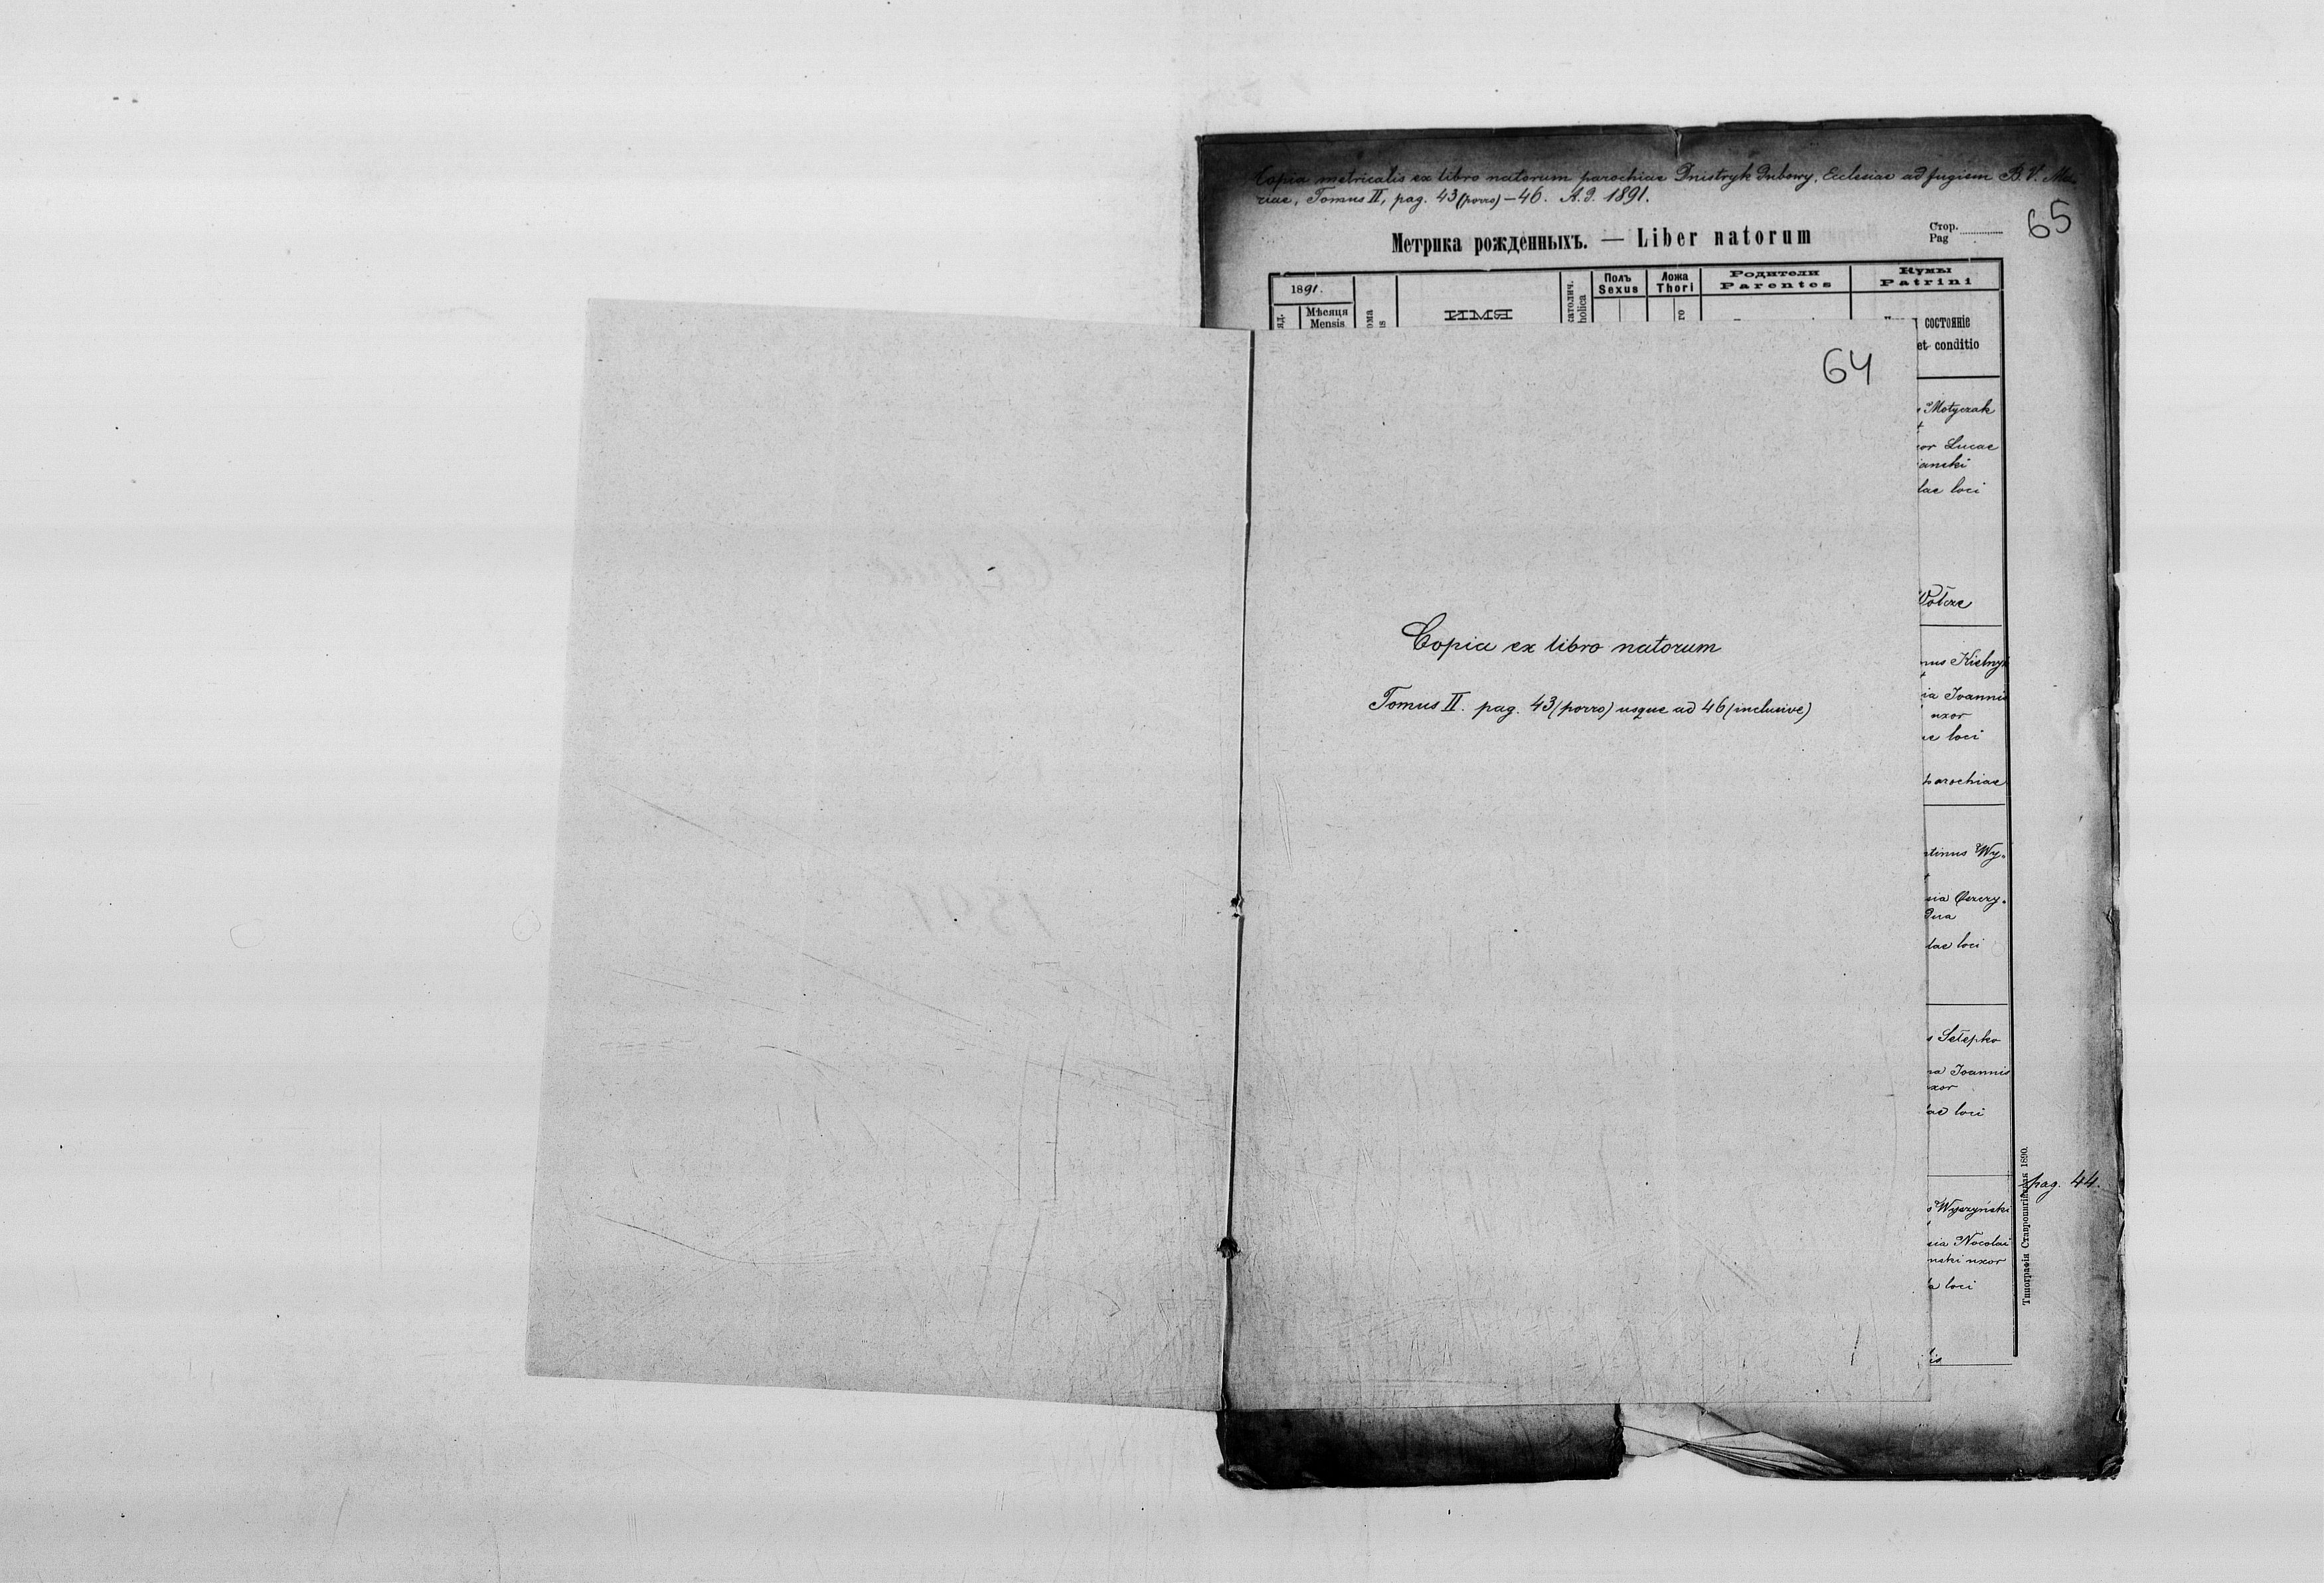 Copia metricalis ex libro natorum parochiae Dnistryk Dubowy, Ecclesiae ad fugiem B. V. Ma-
riae, Tomus II, pag. 43 (porro) – 46. A. D. 1891.
65
Метрика рожденныхъ. — Liber natorum
Стор.
Pag
1891.
Мѣсяця
Mensis
ИМЯ
Полъ
Sexus
Ложа
Thori
Родители
Parentes
Кумы
Patrini
состоянiе
et conditio
64
Copia ex libro natorum
Tomus II. pag. 43 (porro) usque ad 46 (inclusive)
Motyczak
or Lucae
anski
lae loci
nus Kielny
ia Joannis
uxor
ae loci
parochiae
tinus Wy-
lae loci
Setepko
na Joannis
xor
lae loci
pag. 44.
Wyszyński
sia Nocolai
nski uxor
loci
Типографія Ставропигійская 1890.